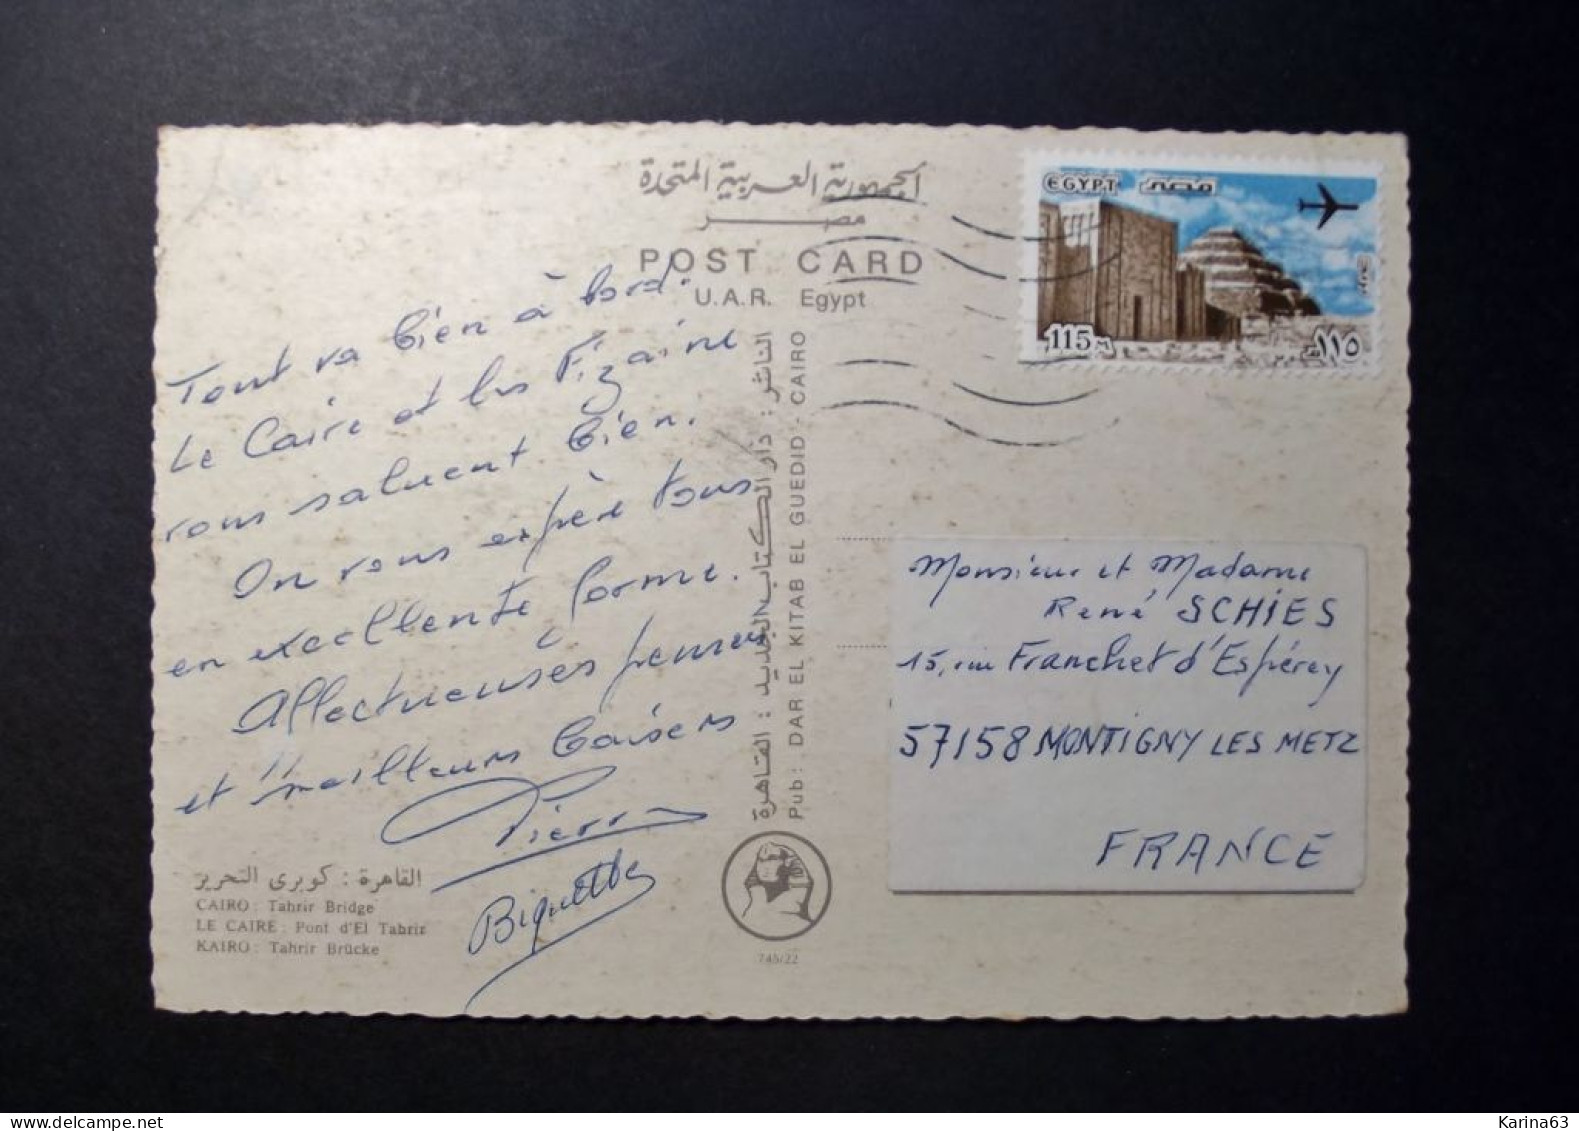 الجمهورية العربية المتحدة
مصر
POST CARD
U.A.R. Egypt
EGYPT مصر
115 M ١١٥
Tout va bien à bord.
Le Caire et les Fizaine
vous saluent bien.
On vous espère tous
en excellente forme.
Affectueuses pensées
et meilleurs baisers
Pierre
Biquette
الناشر : دار الكتاب الجديد : القاهرة
Pub : DAR EL KITAB EL GUEDID - CAIRO
Monsieur et Madame
René SCHIES
15, rue Franchet d'Espérey
57158 MONTIGNY LES METZ
FRANCE
القاهرة : كوبرى التحرير
CAIRO : Tahrir Bridge
LE CAIRE : Pont d'El Tahrir
KAIRO : Tahrir Brücke
745/22
Karina63